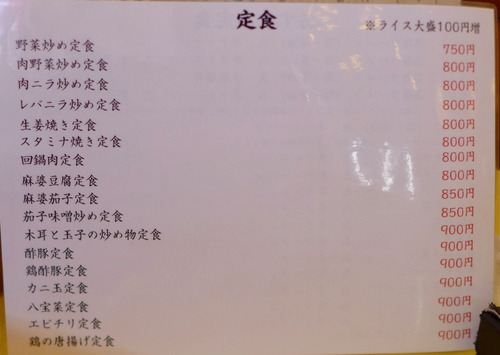 定食
※ライス大盛100円増
野菜炒め定食 750円
肉野菜炒め定食 800円
肉ニラ炒め定食 800円
レバニラ炒め定食 800円
生姜焼き定食 800円
スタミナ焼き定食 800円
回鍋肉定食 800円
麻婆豆腐定食 800円
麻婆茄子定食 850円
茄子味噌炒め定食 850円
木耳と玉子の炒め物定食 900円
酢豚定食 900円
鶏酢豚定食 900円
カニ玉定食 900円
八宝菜定食 900円
エビチリ定食 900円
鶏の唐揚げ定食 900円